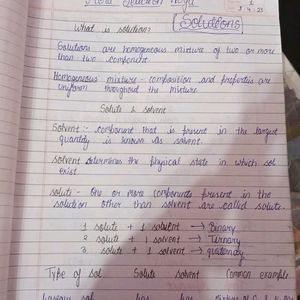 [Solutions]
What is solution?
Solutions are homogeneous mixture of two or more
than two component.
Homogeneous mixture - composition and properties are
uniform throughout the mixture
Solute & solvent
Solvent :- component that is present in the largest
quantity is known as solvent.
solvent determines the physical state in which sol
exist.
solute - One or more components present in the
solution other than solvent are called solute.
1 solute + 1 solvent → Binary
2 solute + 1 solvent → Ternary
3 solute + 1 solvent → quaternary
Type of sol Solute solvent Common example